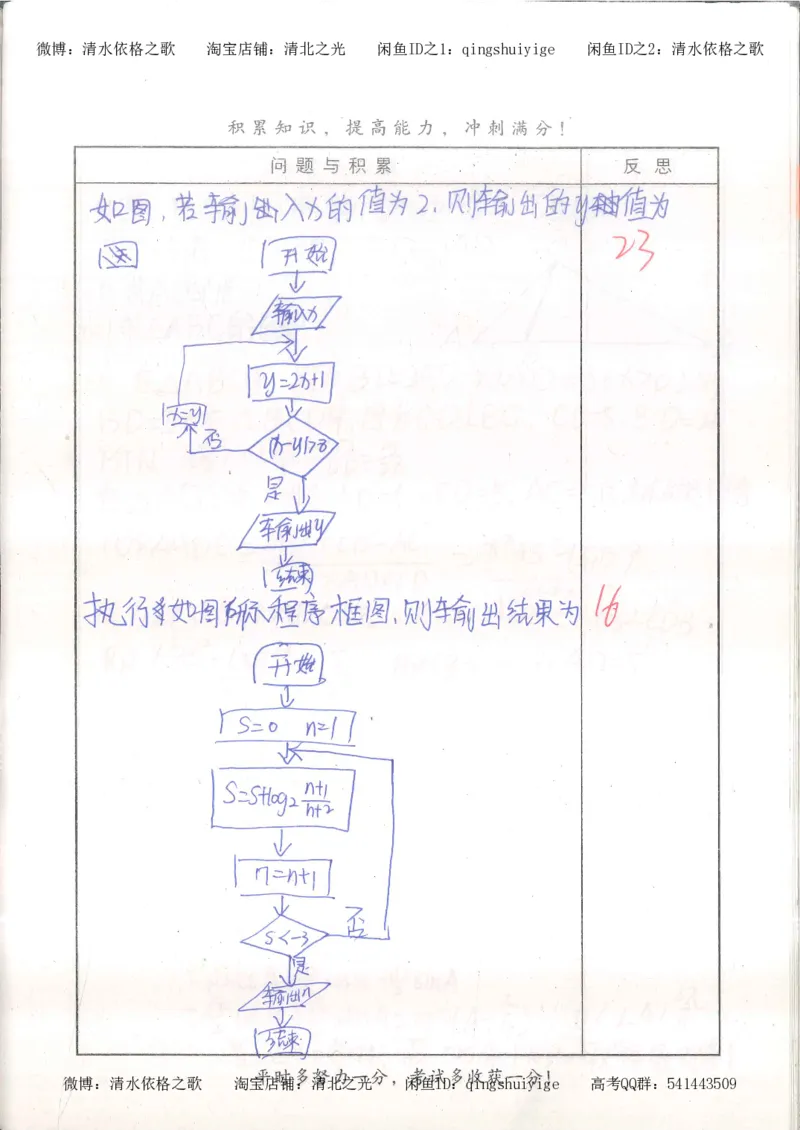 微博：清水依格之歌 淘宝店铺：清北之光 闲鱼ID之1：qingshuiyige 闲鱼ID之2：清水依格之歌
积累知识，提高能力，冲刺满分！
问题与积累 反思
如图，若输入x的值为2，则输出的y值为
23
开始
输入x
y=2x+1
x=y
否
|x-y|>8
是
输出y
结束
执行如图所示程序框图，则输出结果为
16
开始
S=0 n=1
S=S+log₂ (n+1)/(n+2)
n=n+1
S<-3
否
是
输出n
结束
平时多努力一分，考试多收获一分！
微博：清水依格之歌 淘宝店铺：清北之光 闲鱼ID：qingshuiyige 高考QQ群：541443509